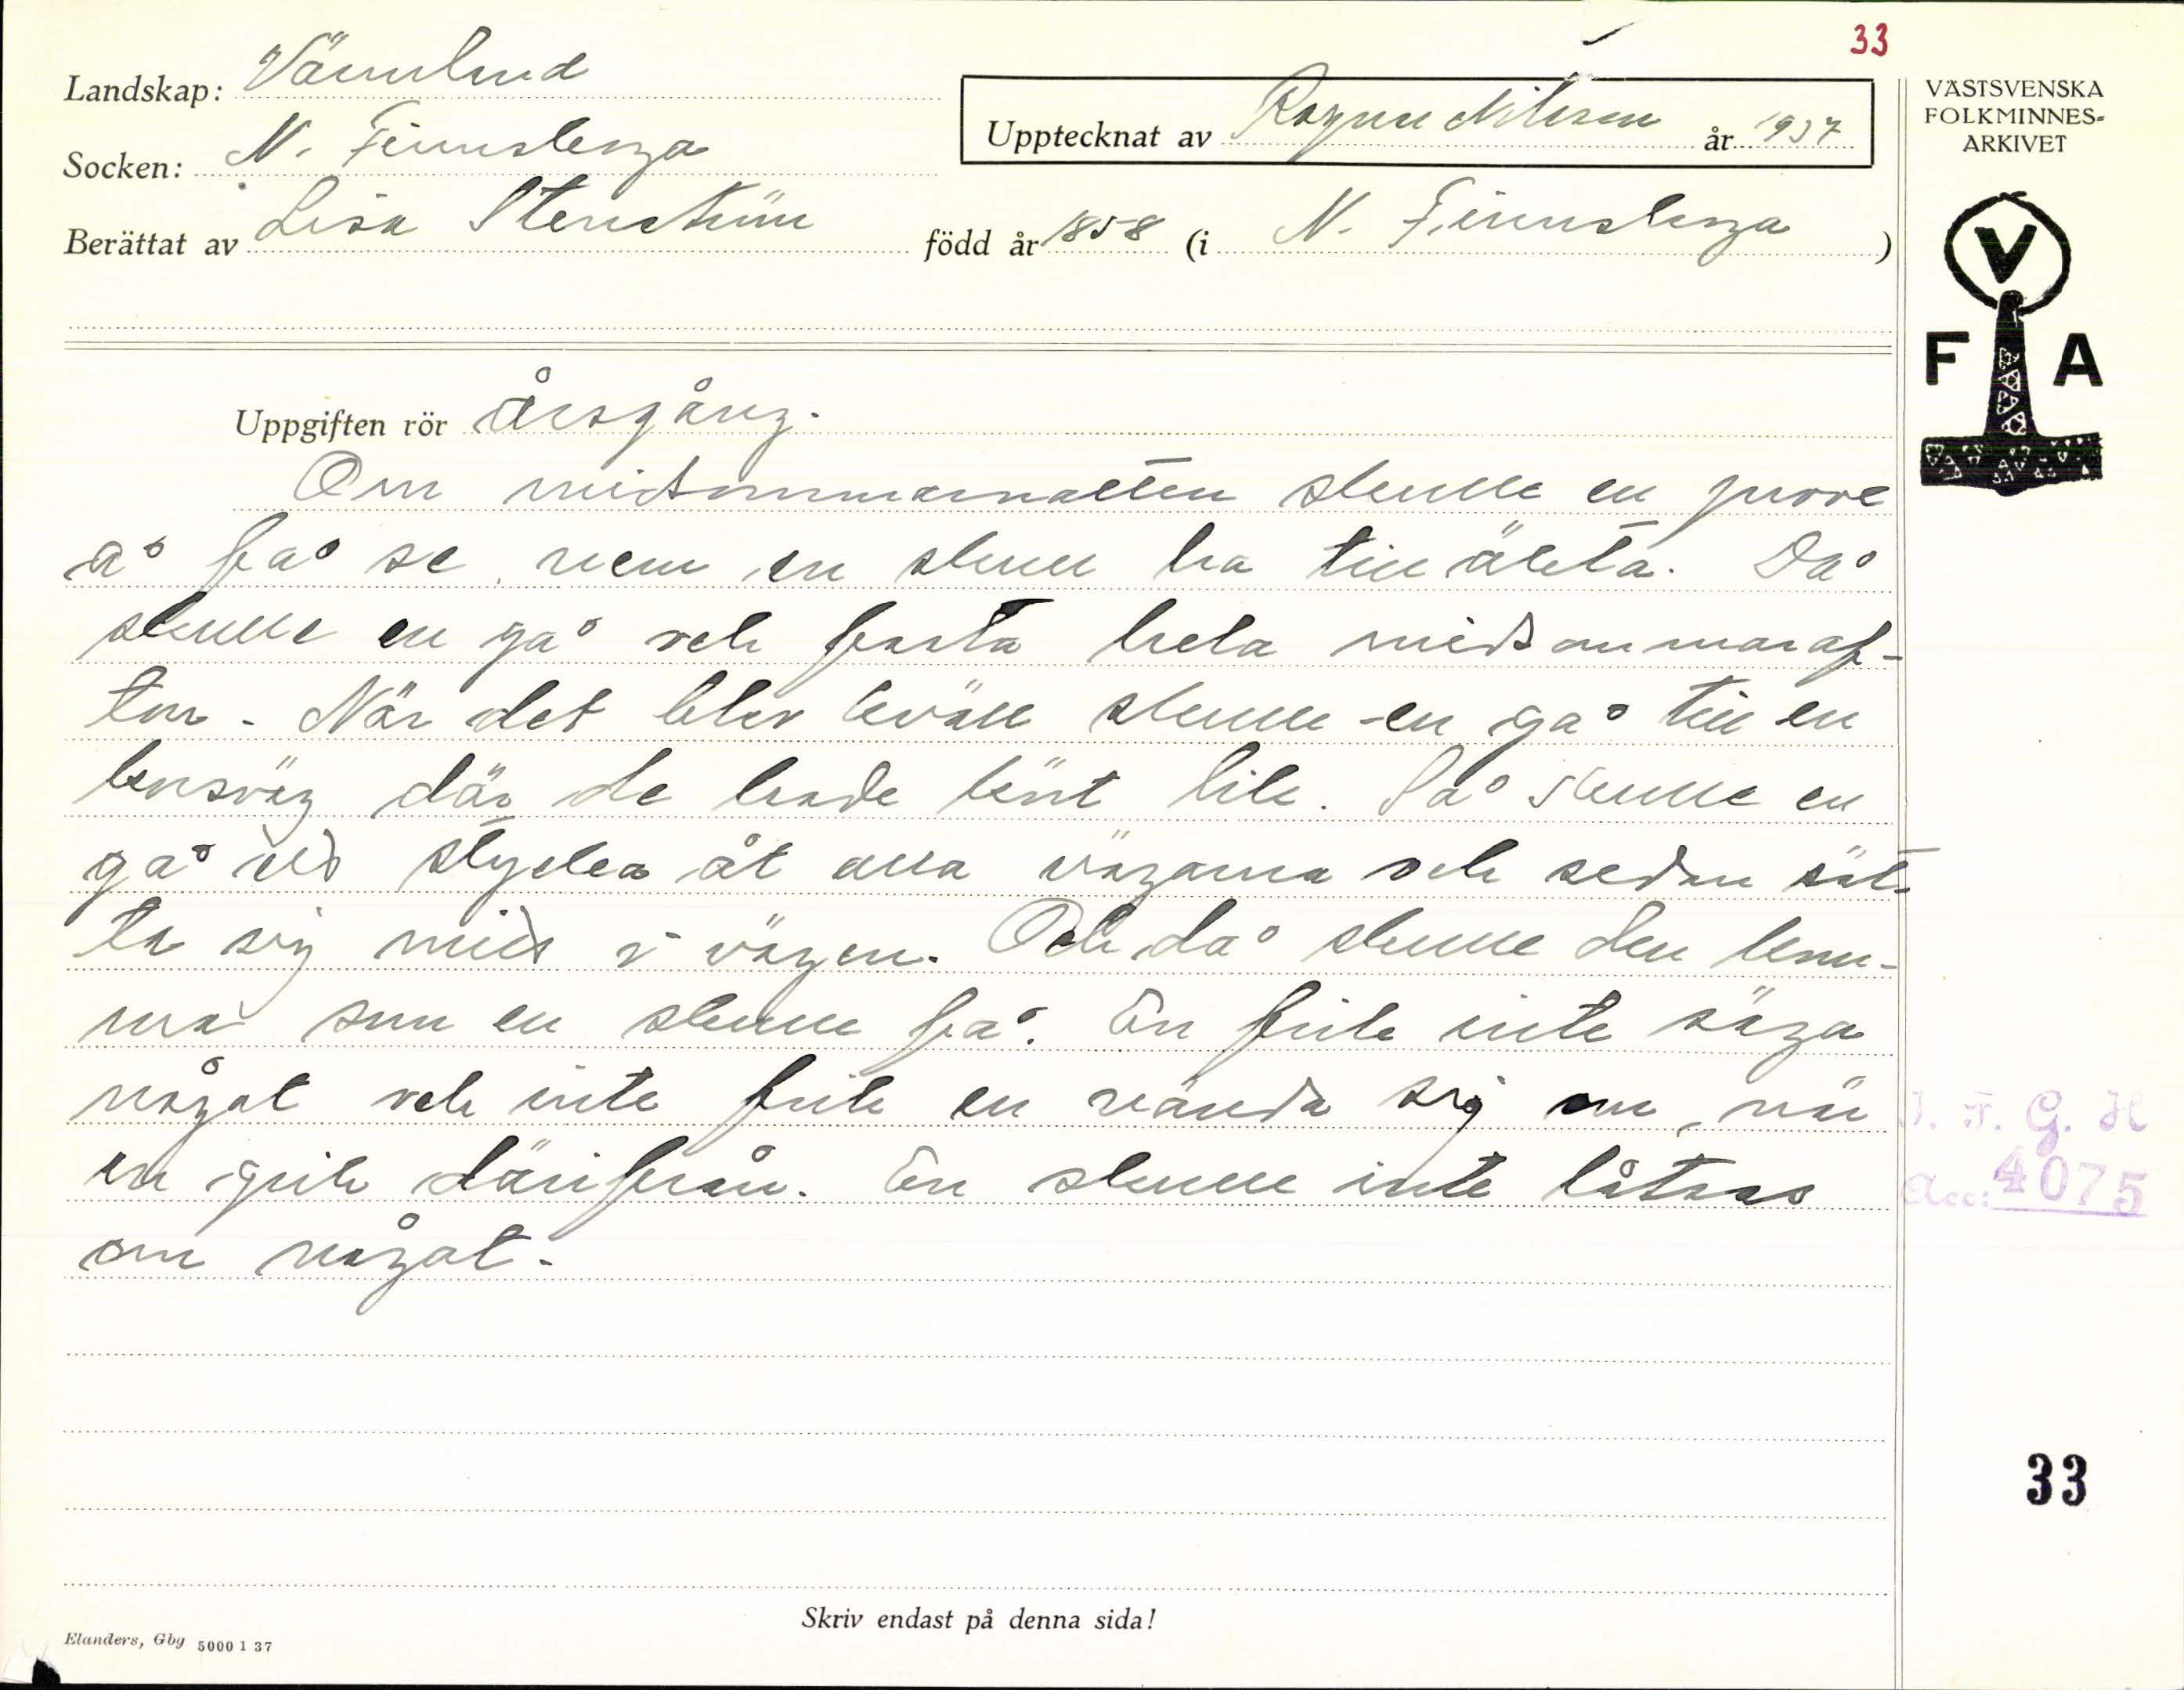 33
Landskap: Värmland
Socken: N. Finnskoga
Upptecknat av Ragnar Nilsson år 1937
Berättat av Lisa Stenström född år 1858 (i N. Finnskoga)
VÄSTSVENSKA
FOLKMINNES-
ARKIVET
V
F A
Uppgiften rör Årsgång.
Om midsommarnatten skulle en prova
å få se vem en skull ha till äkta. Då
skulle en gå och fasta hela midsommaraf-
ton. När det blev kväll skulle en gå till en
korsväg där de hade kört lik. Så skulle en
gå ett stycke åt alla vägarna och sedan sät-
ta sig mitt i vägen. Och då skulle den kom-
ma som en skulle få. En fick inte säga
något och inte fick en vända sig om, när
en gick därifrån. En skulle inte låtsas
om något.
I. F. G. H
Acc: 4075
33
Skriv endast på denna sida!
Elanders, Gbg 5000 1 37